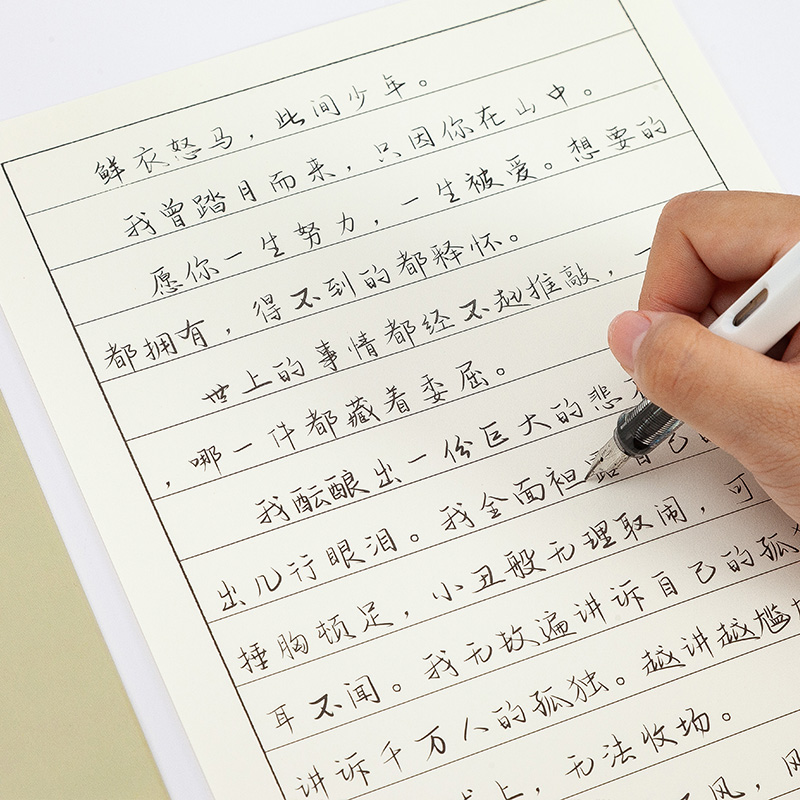 鲜衣怒马，此间少年。
我曾踏月而来，只因你在山中。
愿你一生努力，一生被爱。想要的
都拥有，得不到的都释怀。
世上的事情都经不起推敲，一
，哪一件都藏着委屈。
我酝酿出一份巨大的悲
出几行眼泪。我全面袒露自己的
捶胸顿足，小丑般无理取闹，可
耳不闻。我无故遍讲诉自己的孤独
讲诉千万人的孤独。越讲越尴尬
上，无法收场。
风，风